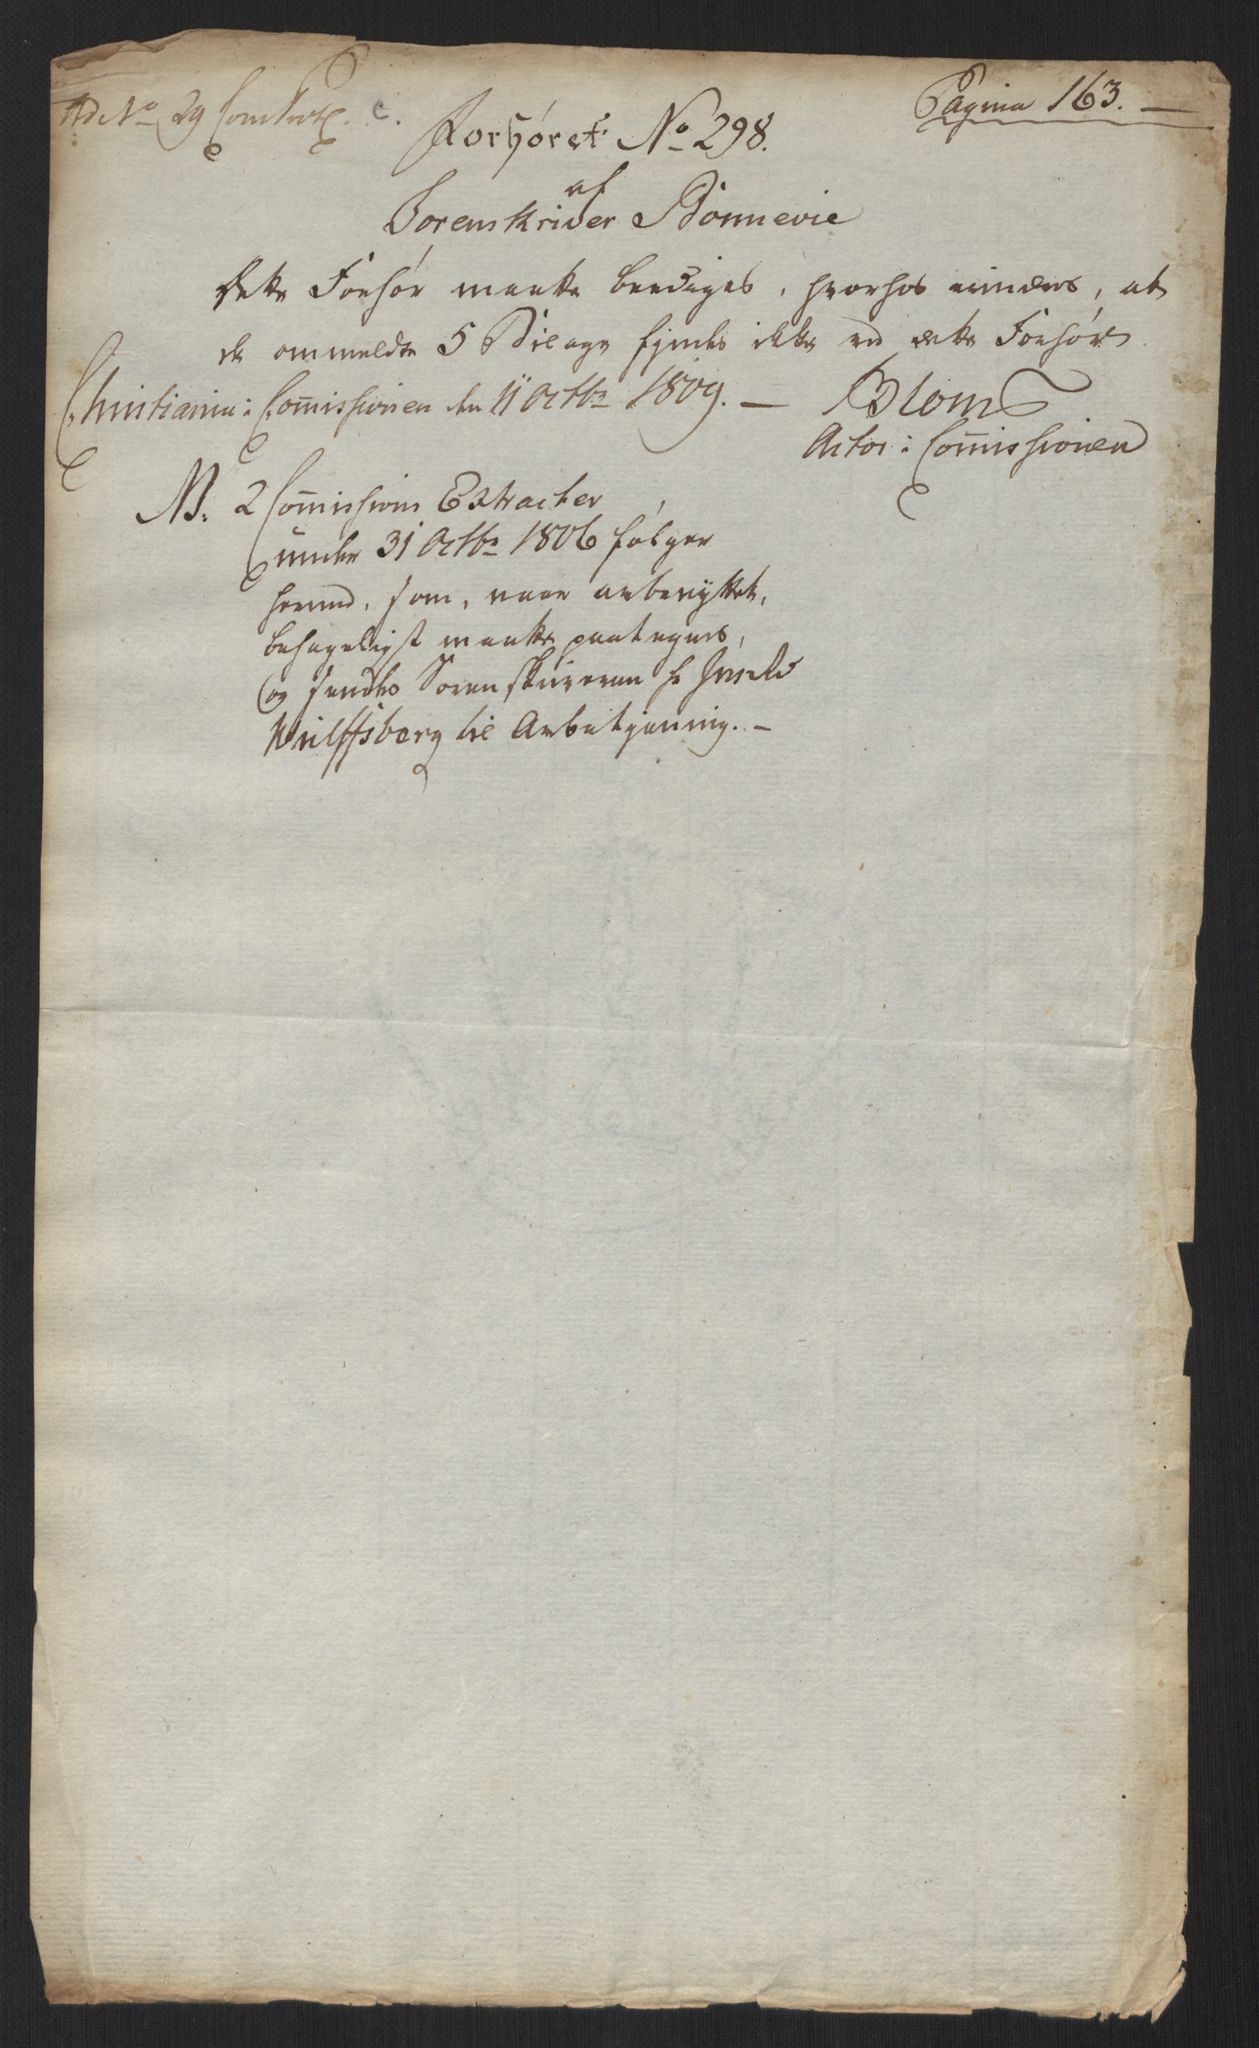 Ad No 29 c.
Pagina 163. —
Forhöret No 298.
af
Sorenskriver Bonnevie
Dette Forhör maatte beediges, hvorhos erindres, at
de ommeldte 5 Bilage findes ikke ved dette Forhör
Christiania: Comissionen den 11 Octbr 1809. —
Blom
Actor i Comissionen
NB. 2 Comissions Extracter
under 31 Octbr 1806 fölger
herved, som, naar afbenyttet,
behageligst maatte paategnes,
og sendes Sorenskriveren Hr
Wulfsberg til Afbetjening. —